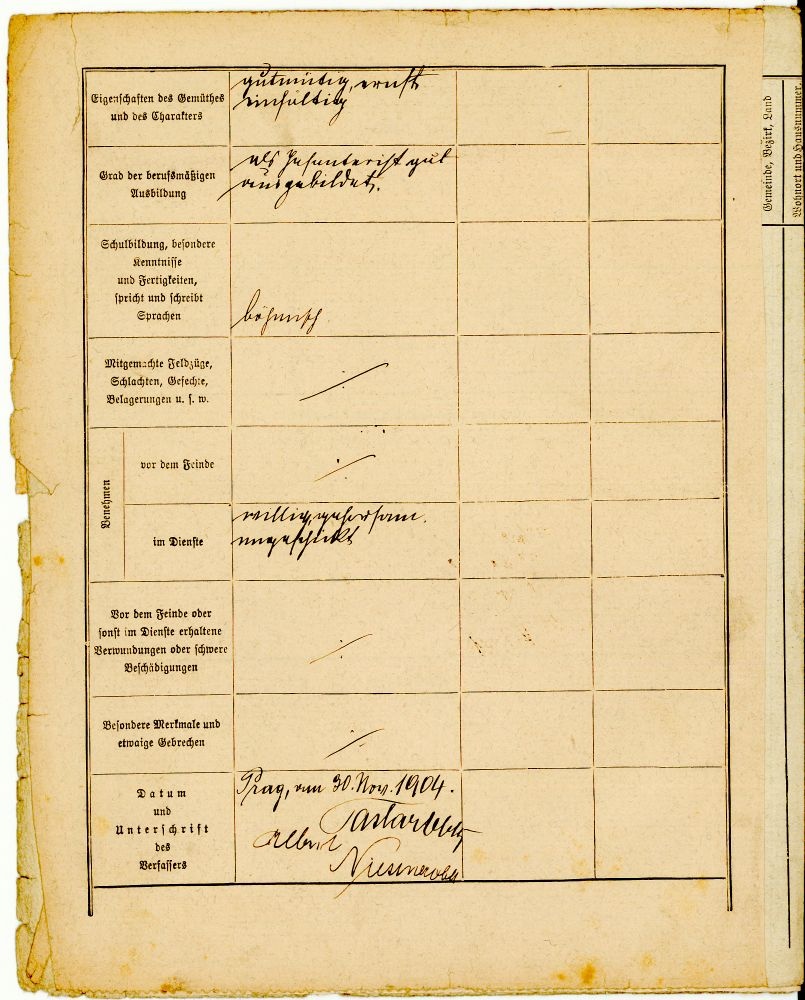 Eigenschaften des Gemüthes
und des Charakters
gutmütig, ernst
einfältig
Grad der berufsmäßigen
Ausbildung
als Infanterist gut
ausgebildet.
Schulbildung, besondere
Kenntnisse
und Fertigkeiten,
spricht und schreibt
Sprachen
böhmisch
Mitgemachte Feldzüge,
Schlachten, Gefechte,
Belagerungen u. s. w.
Benehmen
vor dem Feinde
im Dienste
willig, gehorsam.
ungeschickt
Vor dem Feinde oder
sonst im Dienste erhaltene
Verwundungen oder schwere
Beschädigungen
Besondere Merkmale und
etwaige Gebrechen
Datum
und
Unterschrift
des
Verfassers
Prag, am 30. Nov. 1904.
Albert
Gemeinde, Bezirk, Land
Wohnort und Hausnummer,